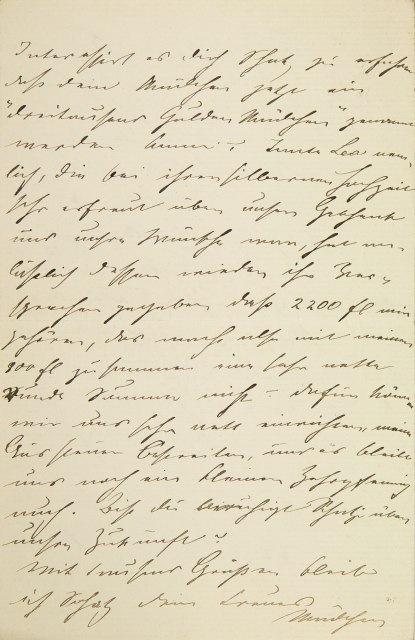 Interessirt es dich Schatz zu erfahren
daß dein Mädchen jetzt ein
"dreitausend Gulden Mädchen" genannt
werden kann? Tante Lea näm-
lich, die bei ihrer silbernen Hochzeit
sehr erfreut über unser Geschenk
und unsre Wünsche war, hat an-
läßlich dessen wieder ihr Ver-
sprechen gegeben daß 2200 fl mir
gehören, das macht also mit meinen
800 fl zusammen eine sehr nette
runde Summe nicht – dafür können
wir uns sehr nett einrichten, meine
Aussteuer bestreiten, und es bleibt
uns noch ein kleiner
auch. Bist du beruhigt Schatz über
unsre Zukunft?
Mit tausend Grüßen bleibe
ich Schatz dein treues
Mädchen